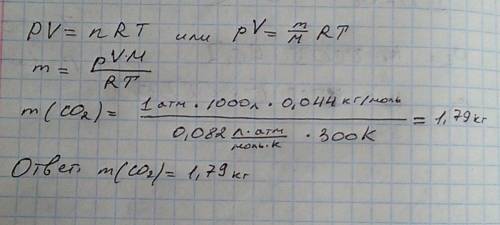 pV = nRT или pV = m/M RT
m = pVM/RT
m(CO₂) = 1 атм · 1000 л · 0,044 кг/моль / 0,082 л·атм/моль·К · 300К = 1,79 кг
Ответ: m(CO₂) = 1,79 кг